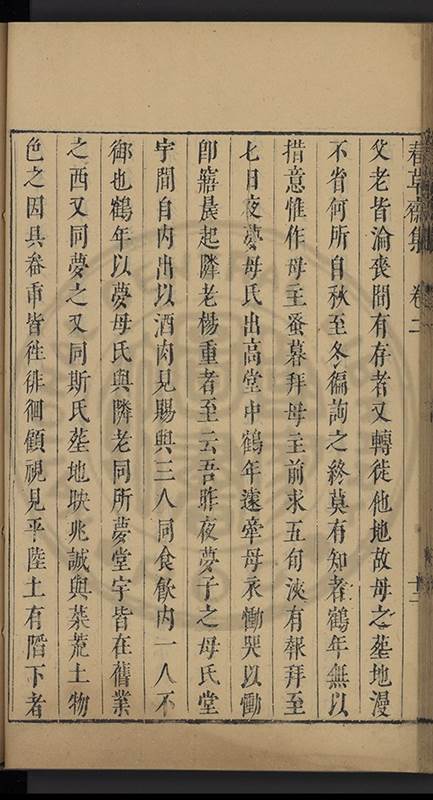 春草齋集 卷二 十二
父老皆淪喪間有存者又轉徙他地故母之塟地漫
不省何所自秋至冬徧詢之終莫有知者鶴年無以
措意惟作母主蚤暮拜母主前求五旬浹有報拜至
七日夜夢母氏出高堂中鶴年遽牽母衣慟哭以慟
卽寤晨起隣老楊重者至云吾昨夜夢子之母氏堂
宇間自内出以酒肉見賜與三人同食飲内一人不
御也鶴年以夢母氏與隣老同所夢堂宇皆在舊業
之西又同夢之又同斯氏塟地昳兆誠與菜荒土物
色之因具畚臿皆徃徘徊顧視見平陸土有階下者